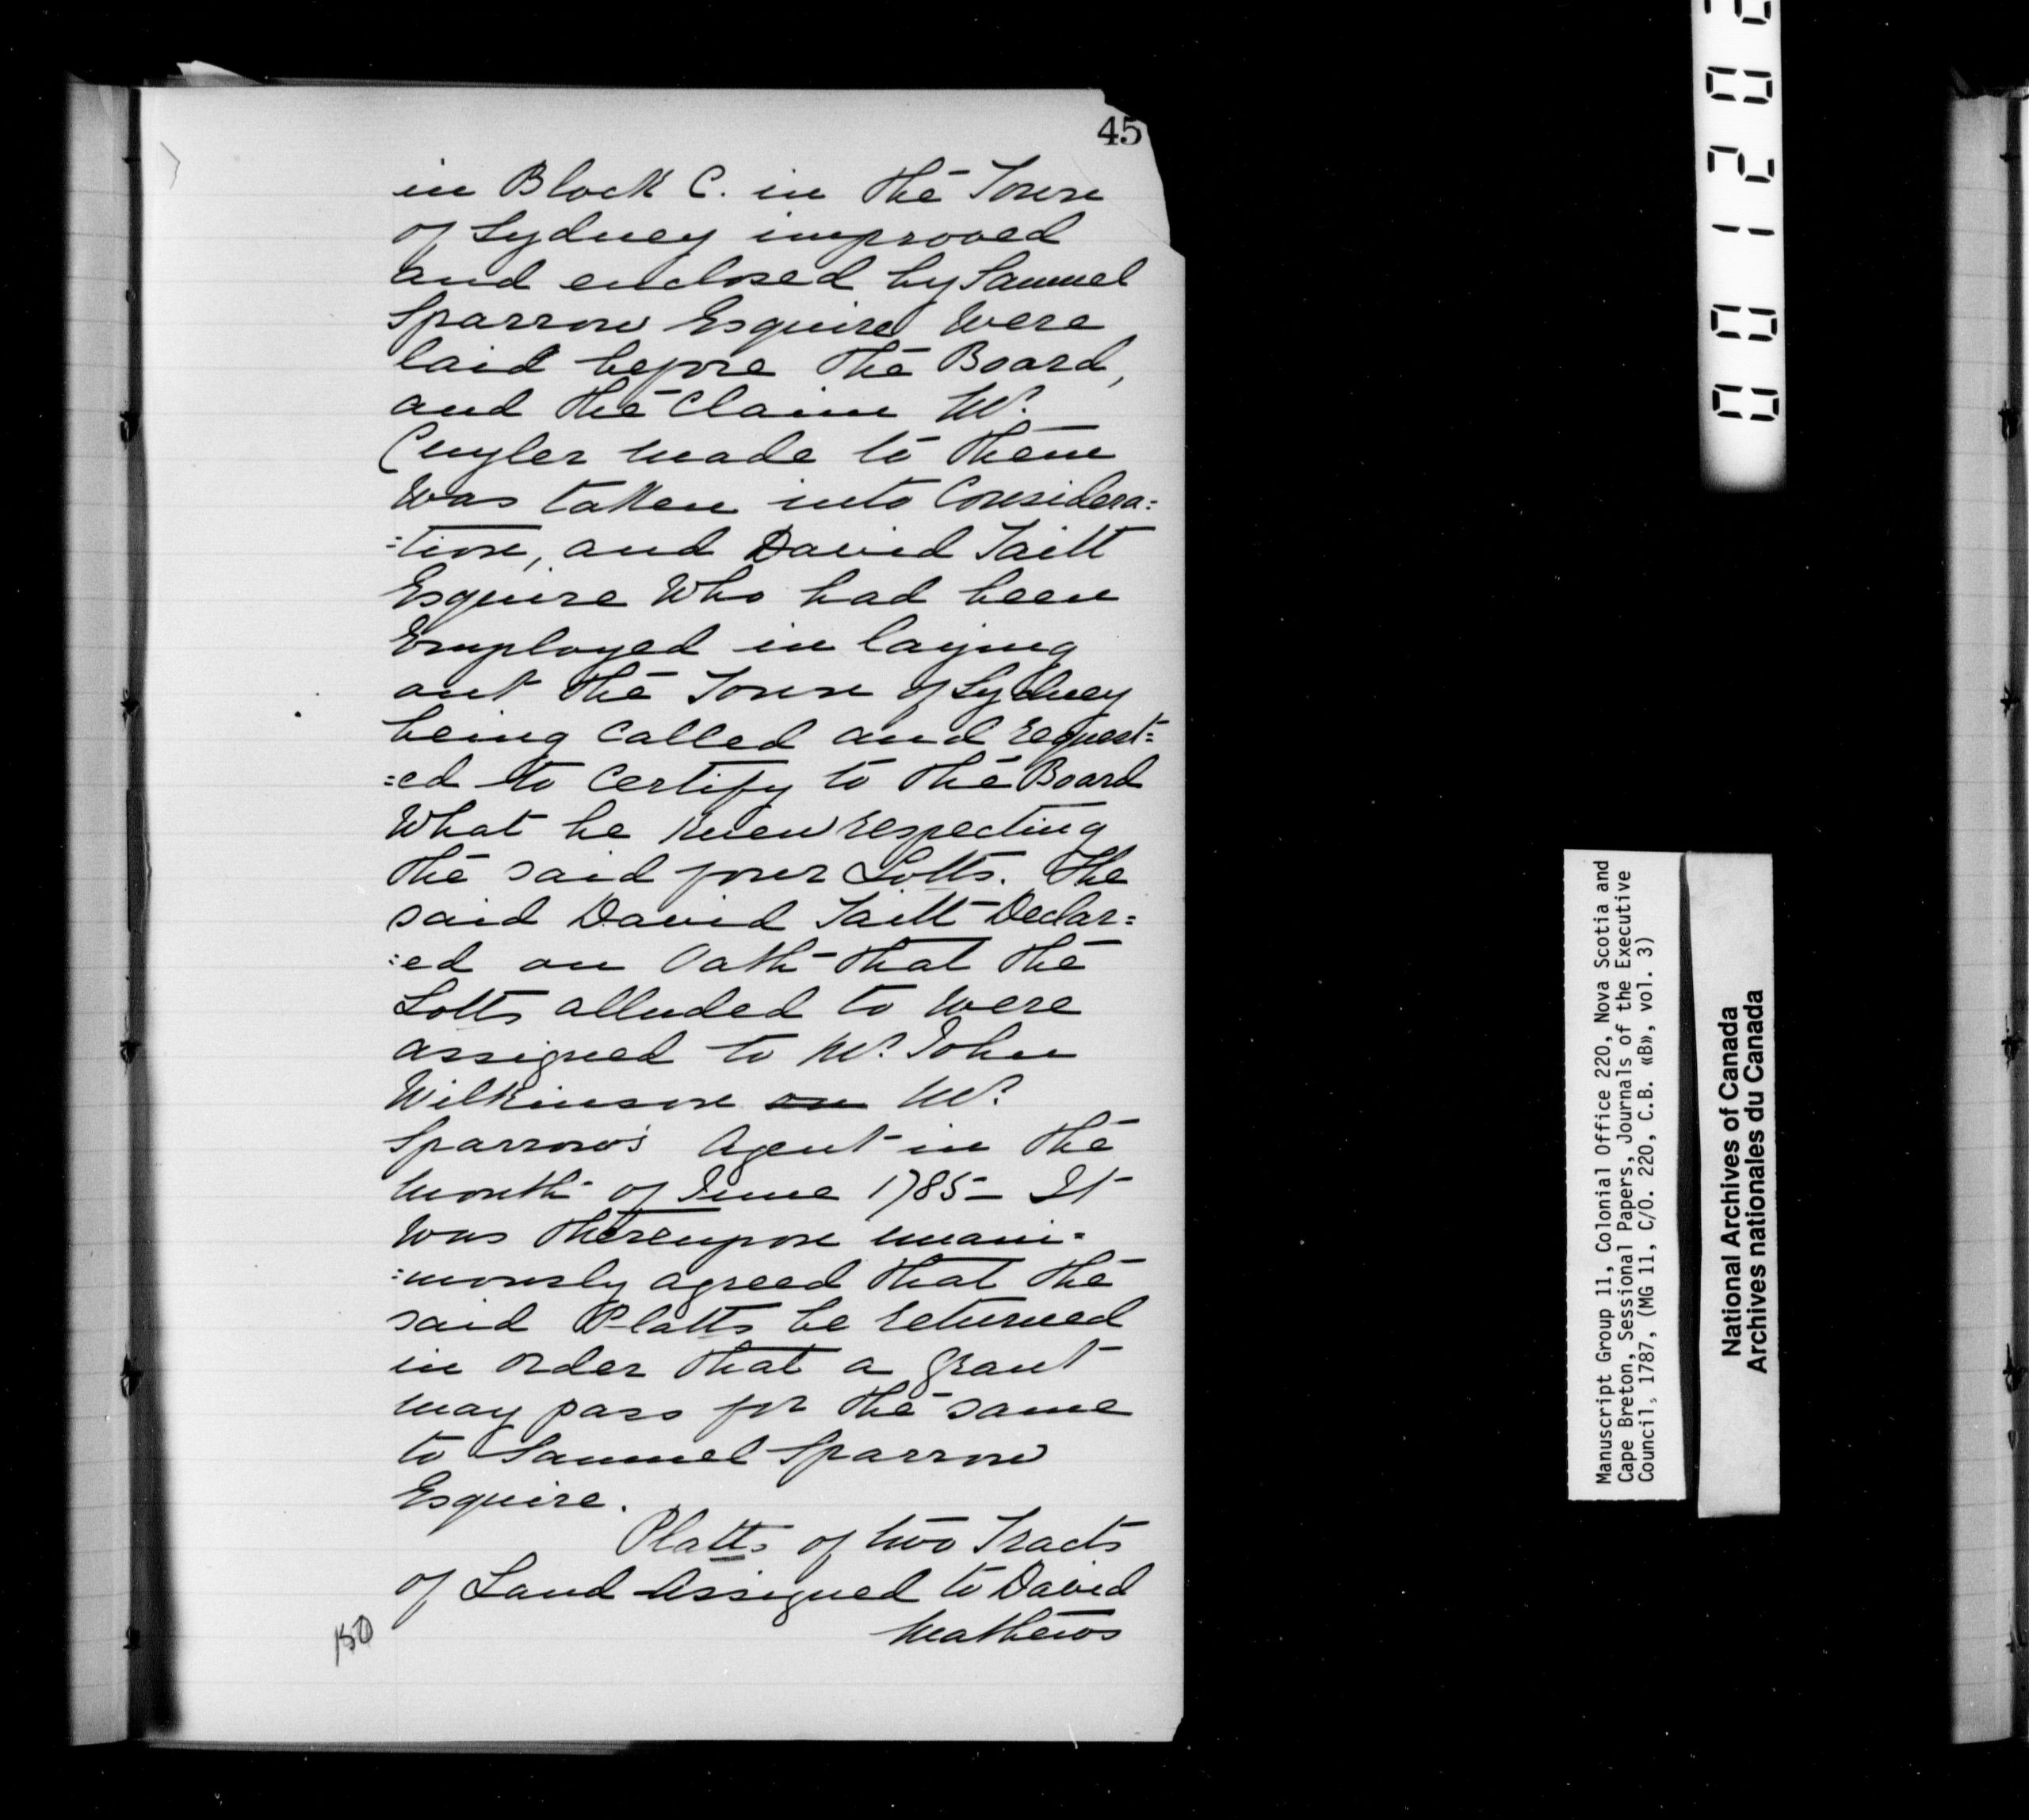 45
in Block C. in the Town
of Sydney improved
and enclosed by Samuel
Sparrow Esquire Were
laid before the Board,
and the Claim Mr.
Cuyler made to them
Was taken into Considera=
=tion, and David Taitt
Esquire Who had been
Employed in laying
out the Town of Sydney
being Called and request=
=ed to Certify to the Board
What he knew respecting
the said four Lotts. The
said David Taitt Declar=
=ed on Oath that the
Lotts alluded to Were
assigned to Mr. John
Wilkinson on Mr.
Sparrow's Agent in the
Month of June 1785 - It
Was thereupon unani=
=mously agreed that the
said Platts be returned
in order that a grant
may pass for the same
to Samuel Sparrow
Esquire.
Platts of two Tracts
of Land Assigned to David
Mathews
150
00120
Manuscript Group 11, Colonial Office 220, Nova Scotia and
Cape Breton, Sessional Papers, Journals of the Executive
Council, 1787, (MG 11, C/O. 220, C.B. «B», vol. 3)
National Archives of Canada
Archives nationales du Canada